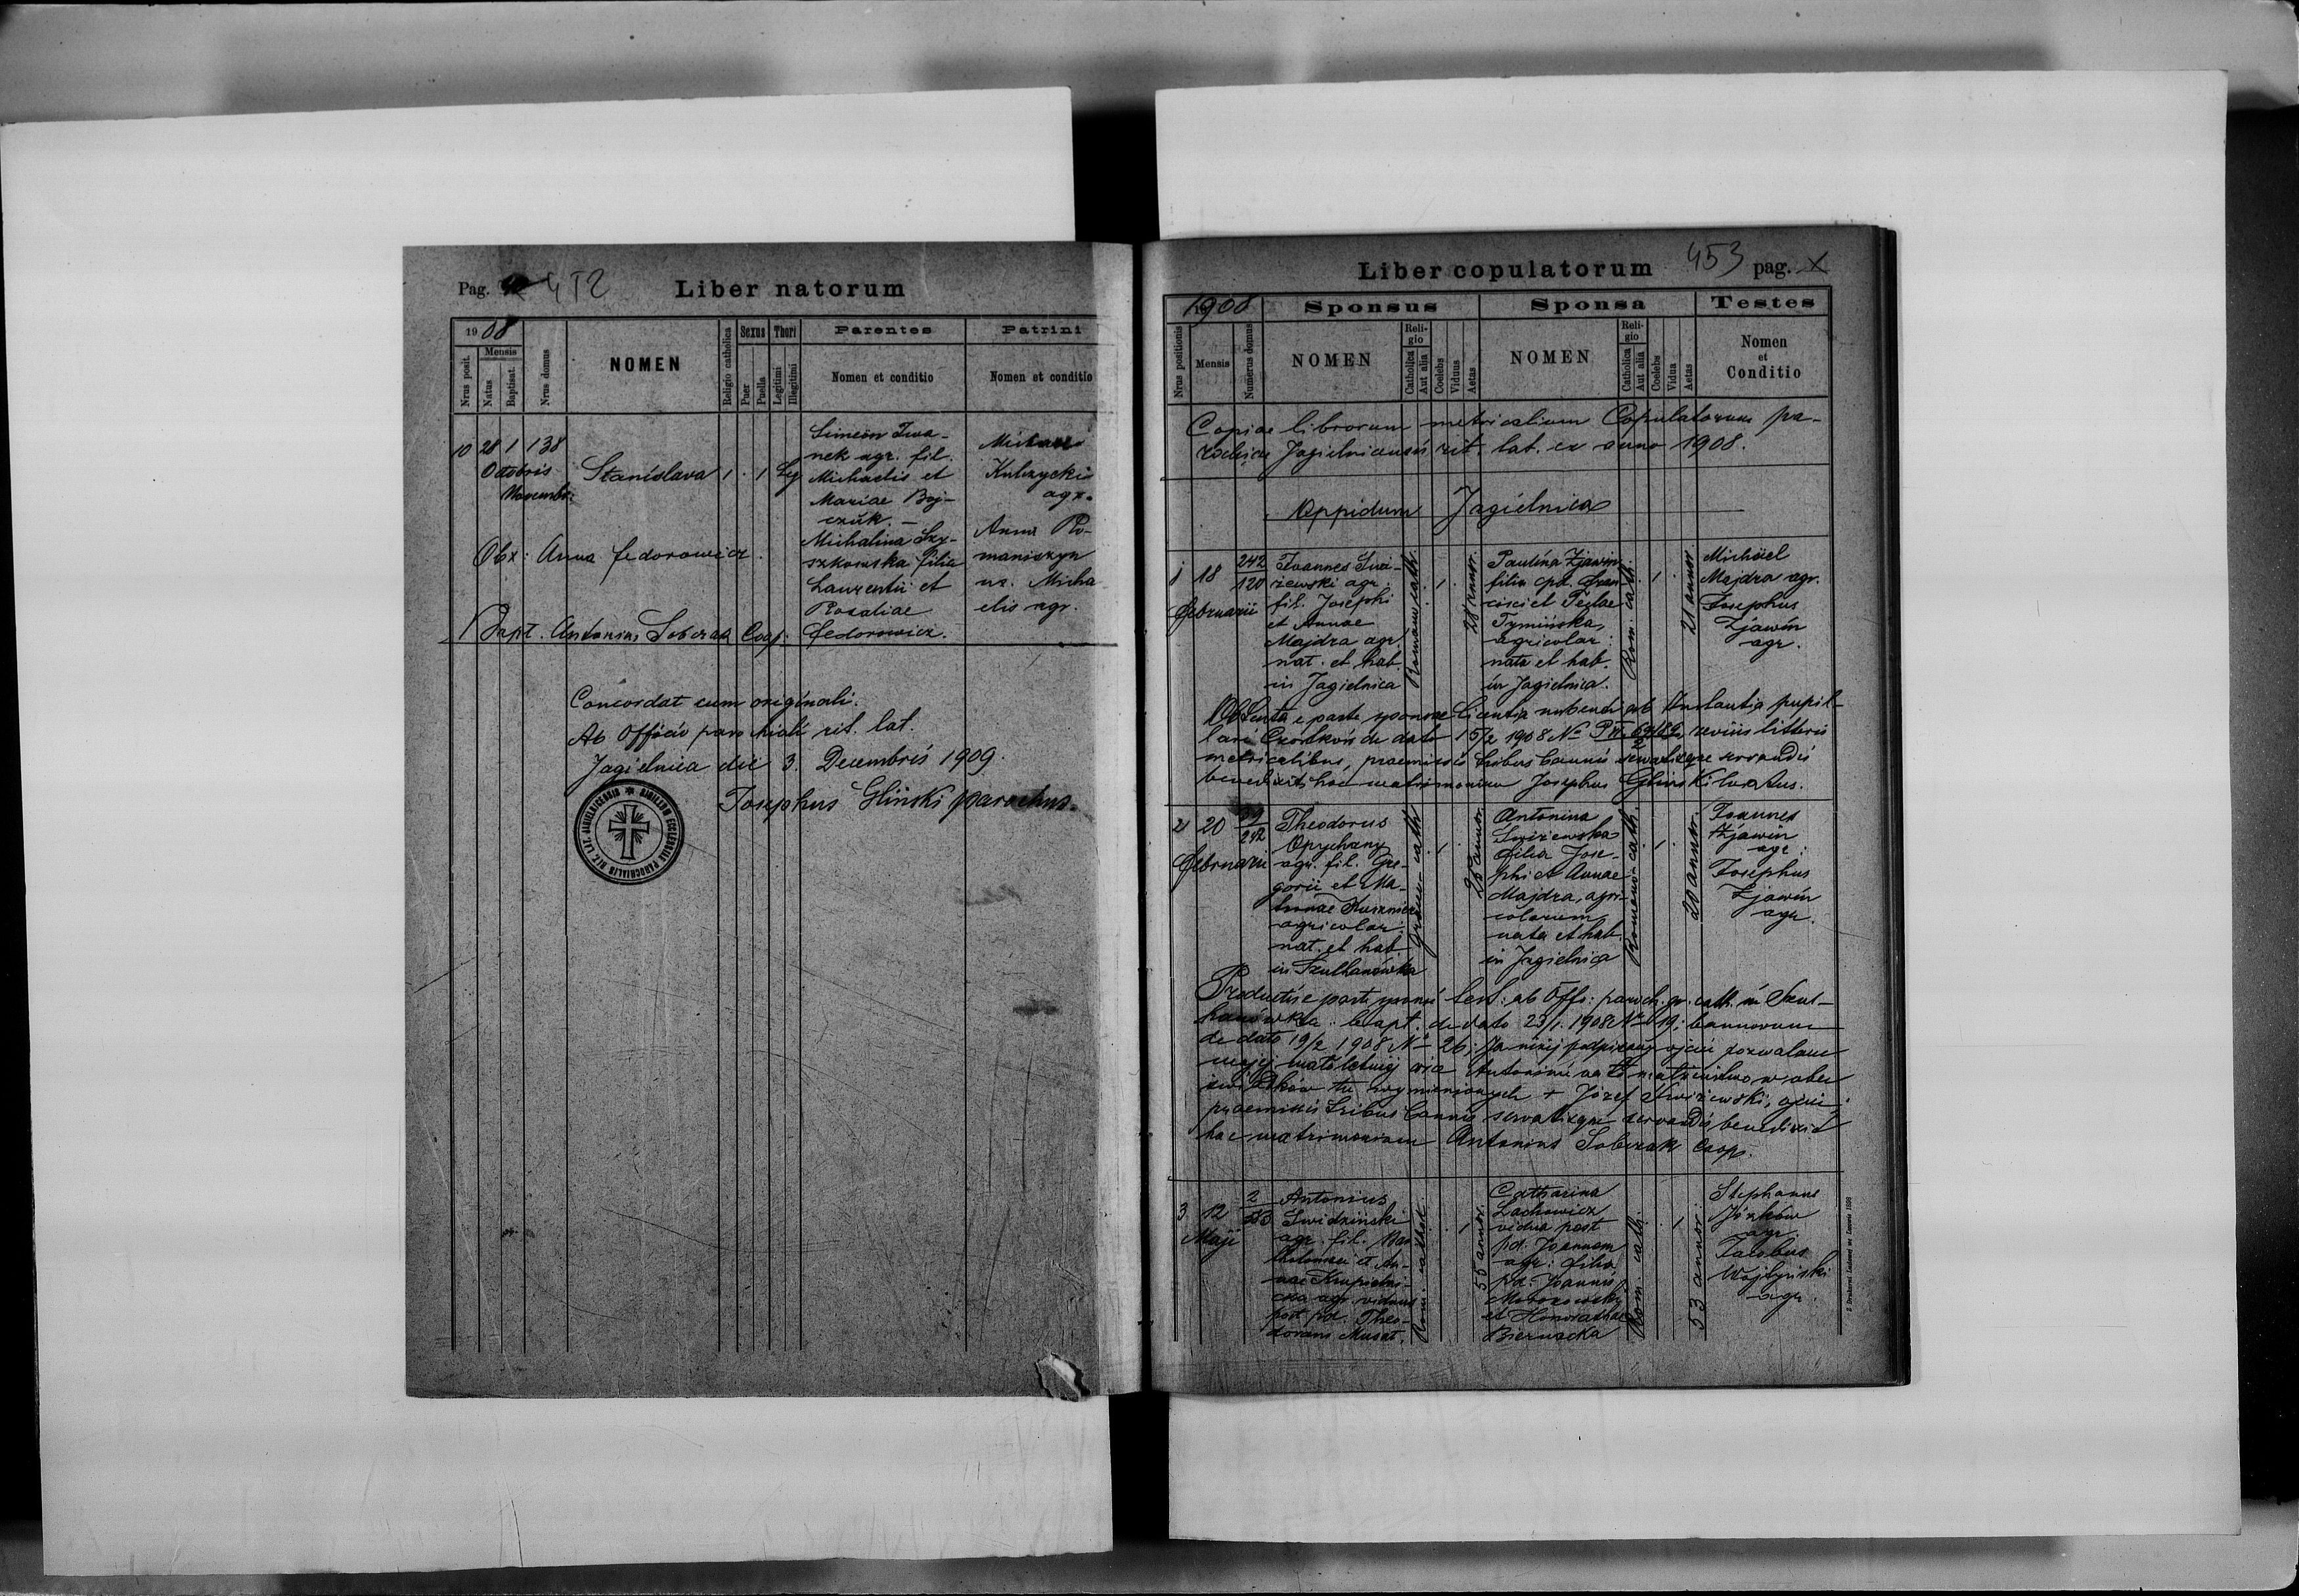 Pag. 452 Liber natorum
1908
Nrus posit.
Mensis
Natus
Baptisat.
Nrus domus
NOMEN
Religio catholica
Sexus
Puer
Puella
Thori
Legitimi
Illegitimi
Parentes
Nomen et conditio
Patrini
Nomen et conditio
10 28 1 138
Octobris
Novembr:
Stanislava 1 . 1 Leg
Simeon Iwa-
nek agr. fil.
Michaelis et
Mariae Boj-
czuk. –
Michalina Szy-
szkowska filia
Laurentii et
Rosaliae
Fedorowicz.
Kulczycki
agr.
Anna Ro-
maniszyn
ux. Micha
elis agr.
Obx: Anna Fedorowicz
Bapt. Antonius Sobczak Coop:
Concordat cum originali.
Ab Officio parochiali rit. lat.
Jagielnica die 3. Decembris 1909.
Josephus Gliński parochus.
Liber copulatorum 453 pag.
1908
Nrus positionis
Mensis
Numerus domus
Sponsus
NOMEN
Religio
Catholica
Aut alia
Coelebs
Viduus
Aetas
Sponsa
NOMEN
Religio
Catholica
Aut alia
Coelebs
Vidua
Aetas
Testes
Nomen
et
Conditio
Copiae librorum metricalium Copulatorum pa-
rochiae Jagielnicensis rit. lat. ex anno 1908.
Oppidum Jagielnica
1 18
Februarii
242
120
Joannes Świ-
rzewski agr.
fil. Josephi
et Annae
Majdra agr.
nat. et hab.
in Jagielnica
Romano cath.
1
28 annor.
Paulina Zjawin
filia
cisci et Teclae
Tymińska,
agricolar:
nata et hab.
in Jagielnica.
Rom. cath.
1
21 annor.
Michäel
Majdra agr.
Josephus
Zjawin
agr.
Obtenta e parte sponsae licentia nubendi ab Instantia pupil-
lari de dato 15/2 1908 No
metricalibus, praemissis tribus bannis servatisque servandis
benedixit hoc matrimonium Josephus Gliński
2 20
Februarii
39
242
Theodorus
Oprychany
agr. fil. Gre-
gorii et Ma-
tronae
agricolar.
nat. et hab
in Szulhanówka
Graeco cath
1
25 annor.
Antonina
Świrzewska
filia Jose-
phi et Annae
Majdra, agri-
colarum
nata et hab.
in Jagielnica
Romano-cath.
1
20 annor.
Joannes
Zjawin
agr.
Josephus
Zjawin
agr.
Productis e parte sponsi test: ab Offo: paroch. gr. cath. in Szul-
hanówka: bapt. de dato 23/1. 1908 No 19; bannorum
de dato 19/2 1908 No 26; Ja niżej podpisany ojciec pozwalam
mojej małoletniej Antoninie na to małżeństwo w obec
świadków tu wymienionych + Józef Świrzewski, ojciec
praemissis tribus bannis servatisque servandis benedixit
hoc matrimonium Antonius Sobczak Coop.
3 12
Maji
2
Antonius
Świdziński
agr. fil. Bar
tholomei et An-
nae Krupelni-
cka agr. viduus
post pd. Theo-
doram Musat.
Rom. cathol.
1
55 annor.
Catharina
Lachowicz
vidua post
pd. Joannem
agr: filia
pd. Joannis
et Honorathae
Biernacka
Rom. cath.
1
53 annor.
Stephanus
Józków
agr.
Jacobus
Wojtyński
agr.